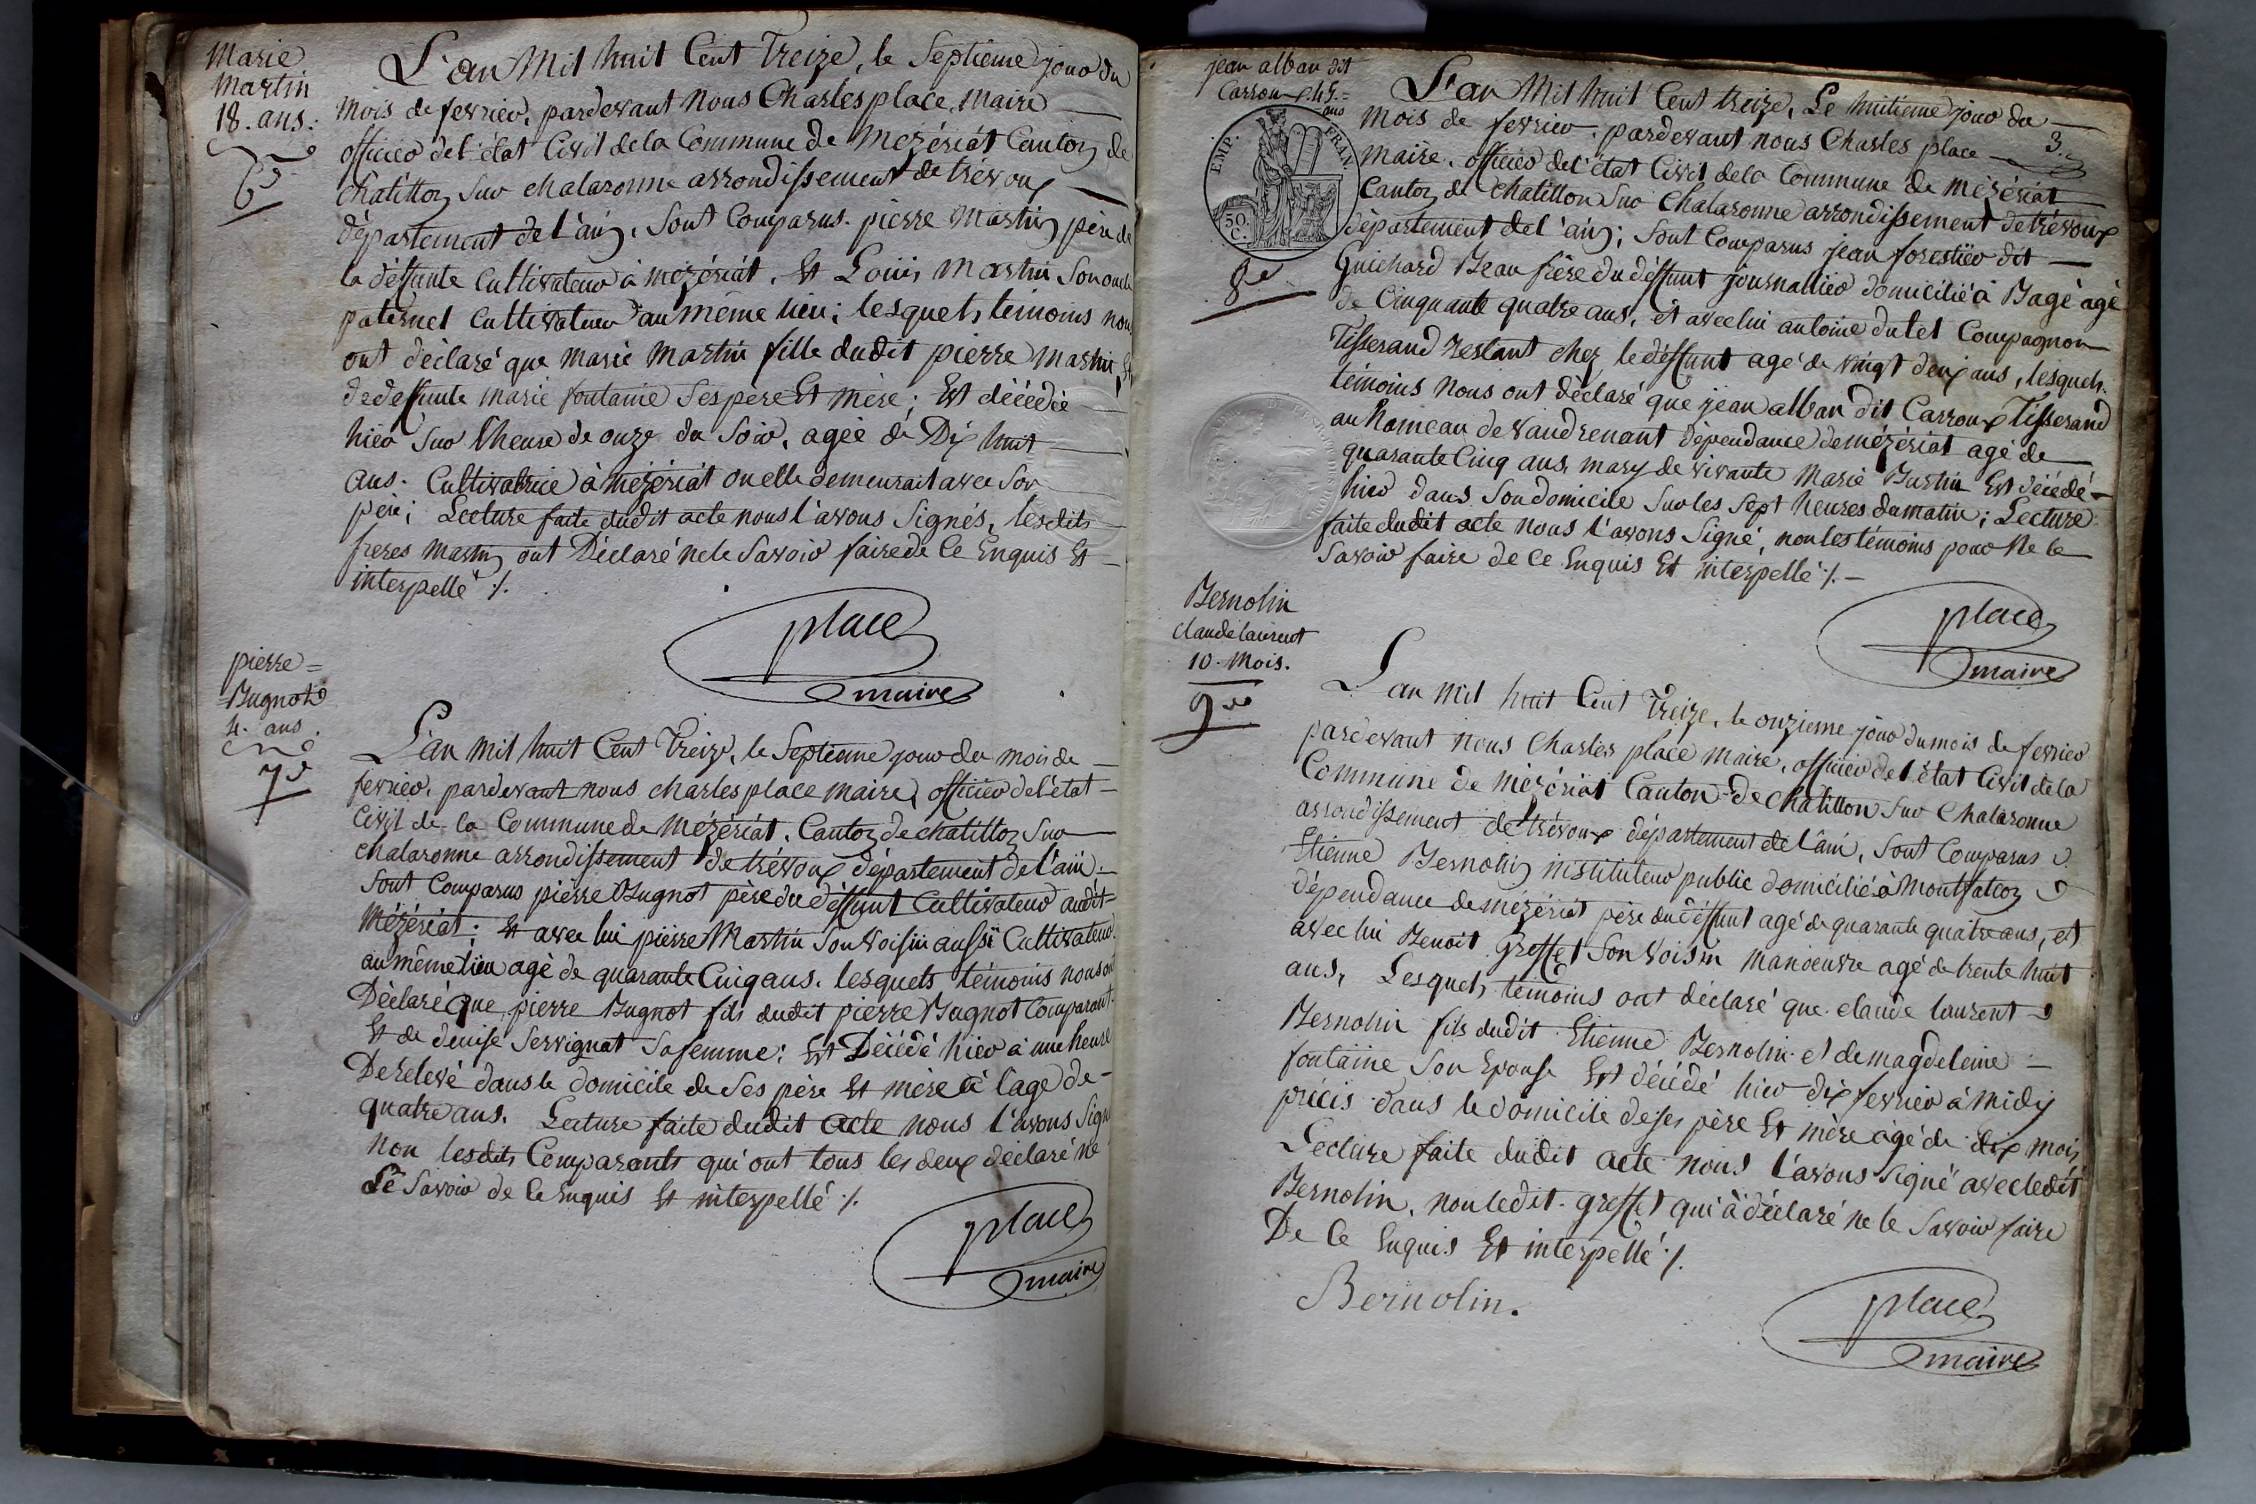 Marie
Martin
18. ans.
6e
L'an Mil huit Cent Treize, le Septième jour du
mois de fevrier, pardevant Nous Charles place, Maire
officier de l'état Civil de la Commune de Mezériat Canton de
Chatillon Sur Chalaronne arrondissement de trévoux
département de l'ain, Sont Comparus. pierre Martin père de
la déffunte Cultivateur à mezériat. Et Louis Martin Son oncle
paternel Cultivateur au même lieu; lesquels témoins nous
ont déclaré que marie Martin fille dudit pierre Martin, Et
de deffunte Marie fontaine Ses père Et mère; Est décédée
hier Sur l'heure de onze du Soir, agée de Dix huit
ans. Cultivatrice à mézériat ou elle demeurait avec Son
père; Lecture faite dudit acte nous l'avons Signés, lesdits
freres Martin ont Déclaré ne le Savoir faire de Ce Enquis Et
interpellé ./.
place
maire
pierre
Bugnot
4. ans.
7e
L'an mil huit Cent Treize, le Septieme jour du mois de
fevrier, pardevant nous charles place maire, officier de l'état
Civil de la Commune de Mézériat, Canton de chatillon Sur
chalaronne arrondissement de trévoux département de l'ain:
Sont Comparus pierre Bugnot père du déffunt Cultivateur audit
Mézériat; Et avec lui pierre Martin Son Voisin aussi Cultivateur
au même lieu agé de quarante Cinq ans. lesquels témoins nous ont
Déclaré Que pierre Bugnot fils dudit pierre Bugnot Comparant
Et de denise Servignat Sa femme; Est Décédé hier à une heure
De relevé dans le domicile de Ses père Et mère à l'age de
quatre ans. Lecture faite dudit acte nous l'avons Signé
non lesdits Comparants qui ont tous les deux déclaré ne
Le Savoir de Ce Enquis Et interpellé ./.
place
maire
jean alban dit
Carroux 45.
ans
EMP. FRAN.
50 C.
3.
8e
L'an Mil huit Cent treize, Le huitieme jour du
mois de fevrier, pardevant nous Charles place
maire, officier de l'état Civil de la Commune de mézériat
Canton de Chatillon Sur Chalaronne arrondissement de trévoux
département de l'ain; Sont Comparus jean forestier dit
Guichard Beau frère du déffunt journallier domicilié à Bagé agé
de Cinquante quatre ans, et avec lui antoine dutel Compagnon
Tisserand restant chez le déffunt agé de vingt deux ans, lesquels
témoins nous ont déclaré que jean alban dit Carroux Tisserand
au hameau de Vaudrenant dépendance de mézériat agé de
quarante Cinq ans, mary de vivante Marie Burtin Est décédé
hier dans Son domicile Sur les Sept heures du matin; Lecture
faite dudit acte nous l'avons Signé, non les témoins pour Ne le
Savoir faire de Ce Enquis Et interpellé ./.
place
maire
Bernolin
claude laurent
10. Mois.
9e
L'an mil huit Cent Treize, le onzieme jour du mois de fevrier
pardevant nous Charles place Maire, officier de l'état Civil de la
Commune de Mézériat Canton de Chatillon Sur Chalaronne
arrondissement de trévoux département de l'ain, Sont Comparus
Etienne Bernolin instituteur public domicilié à Montfalcon
dépendance de mézériat père du déffunt agé de quarante quatre ans, et
avec lui Benoit Greffet Son Voisin manoeuvre agé de trente huit
ans, Lesquels témoins ont déclaré que claude laurent
Bernolin fils dudit Etienne Bernolin et de magdeleine
fontaine Son Epouse Est décédé hier dix fevrier à midy
précis dans le domicile de ses père Et mère agé de dix mois,
Lecture faite dudit acte nous l'avons Signé avec ledit
Bernolin, non ledit Greffet qui à déclaré ne le Savoir faire
De Ce Enquis Et interpellé ./.
Bernolin.
place
maire